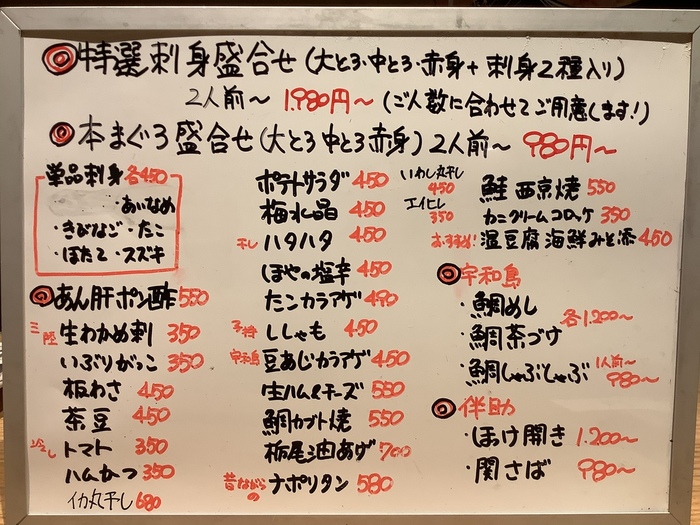 ◎特選刺身盛合せ(大とろ・中とろ・赤身+刺身2種入り)
2人前〜 1.980円〜(ご人数に合わせてご用意します!)
◎本まぐろ盛合せ(大とろ 中とろ 赤身)2人前〜 980円〜
単品刺身 各450
・あいなめ
・きびなご・たこ
・ほたて・スズキ
◎あん肝ポン酢 550
三陸 生わかめ刺 350
いぶりがっこ 350
板わさ 450
茶豆 450
冷し トマト 350
ハムかつ 350
イカ丸干し 680
ポテトサラダ 450
梅水晶 450
干し ハタハタ 450
ほやの塩辛 450
たこカラアゲ 490
子持 ししゃも 450
宇和島 豆あじカラアゲ 450
生ハム&チーズ 550
鯛カブト焼 550
栃尾油あげ 700
昔ながらの ナポリタン 580
いわし丸干し 450
エイヒレ 350
鮭 西京焼 550
カニクリームコロッケ 350
おすすめ! 温豆腐 海鮮みそ添 450
◎宇和島
・鯛めし
・鯛茶づけ
各1.200〜
・鯛しゃぶしゃぶ 1人前〜 980〜
◎伴助
・ほっけ開き 1.200〜
・関さば 980〜